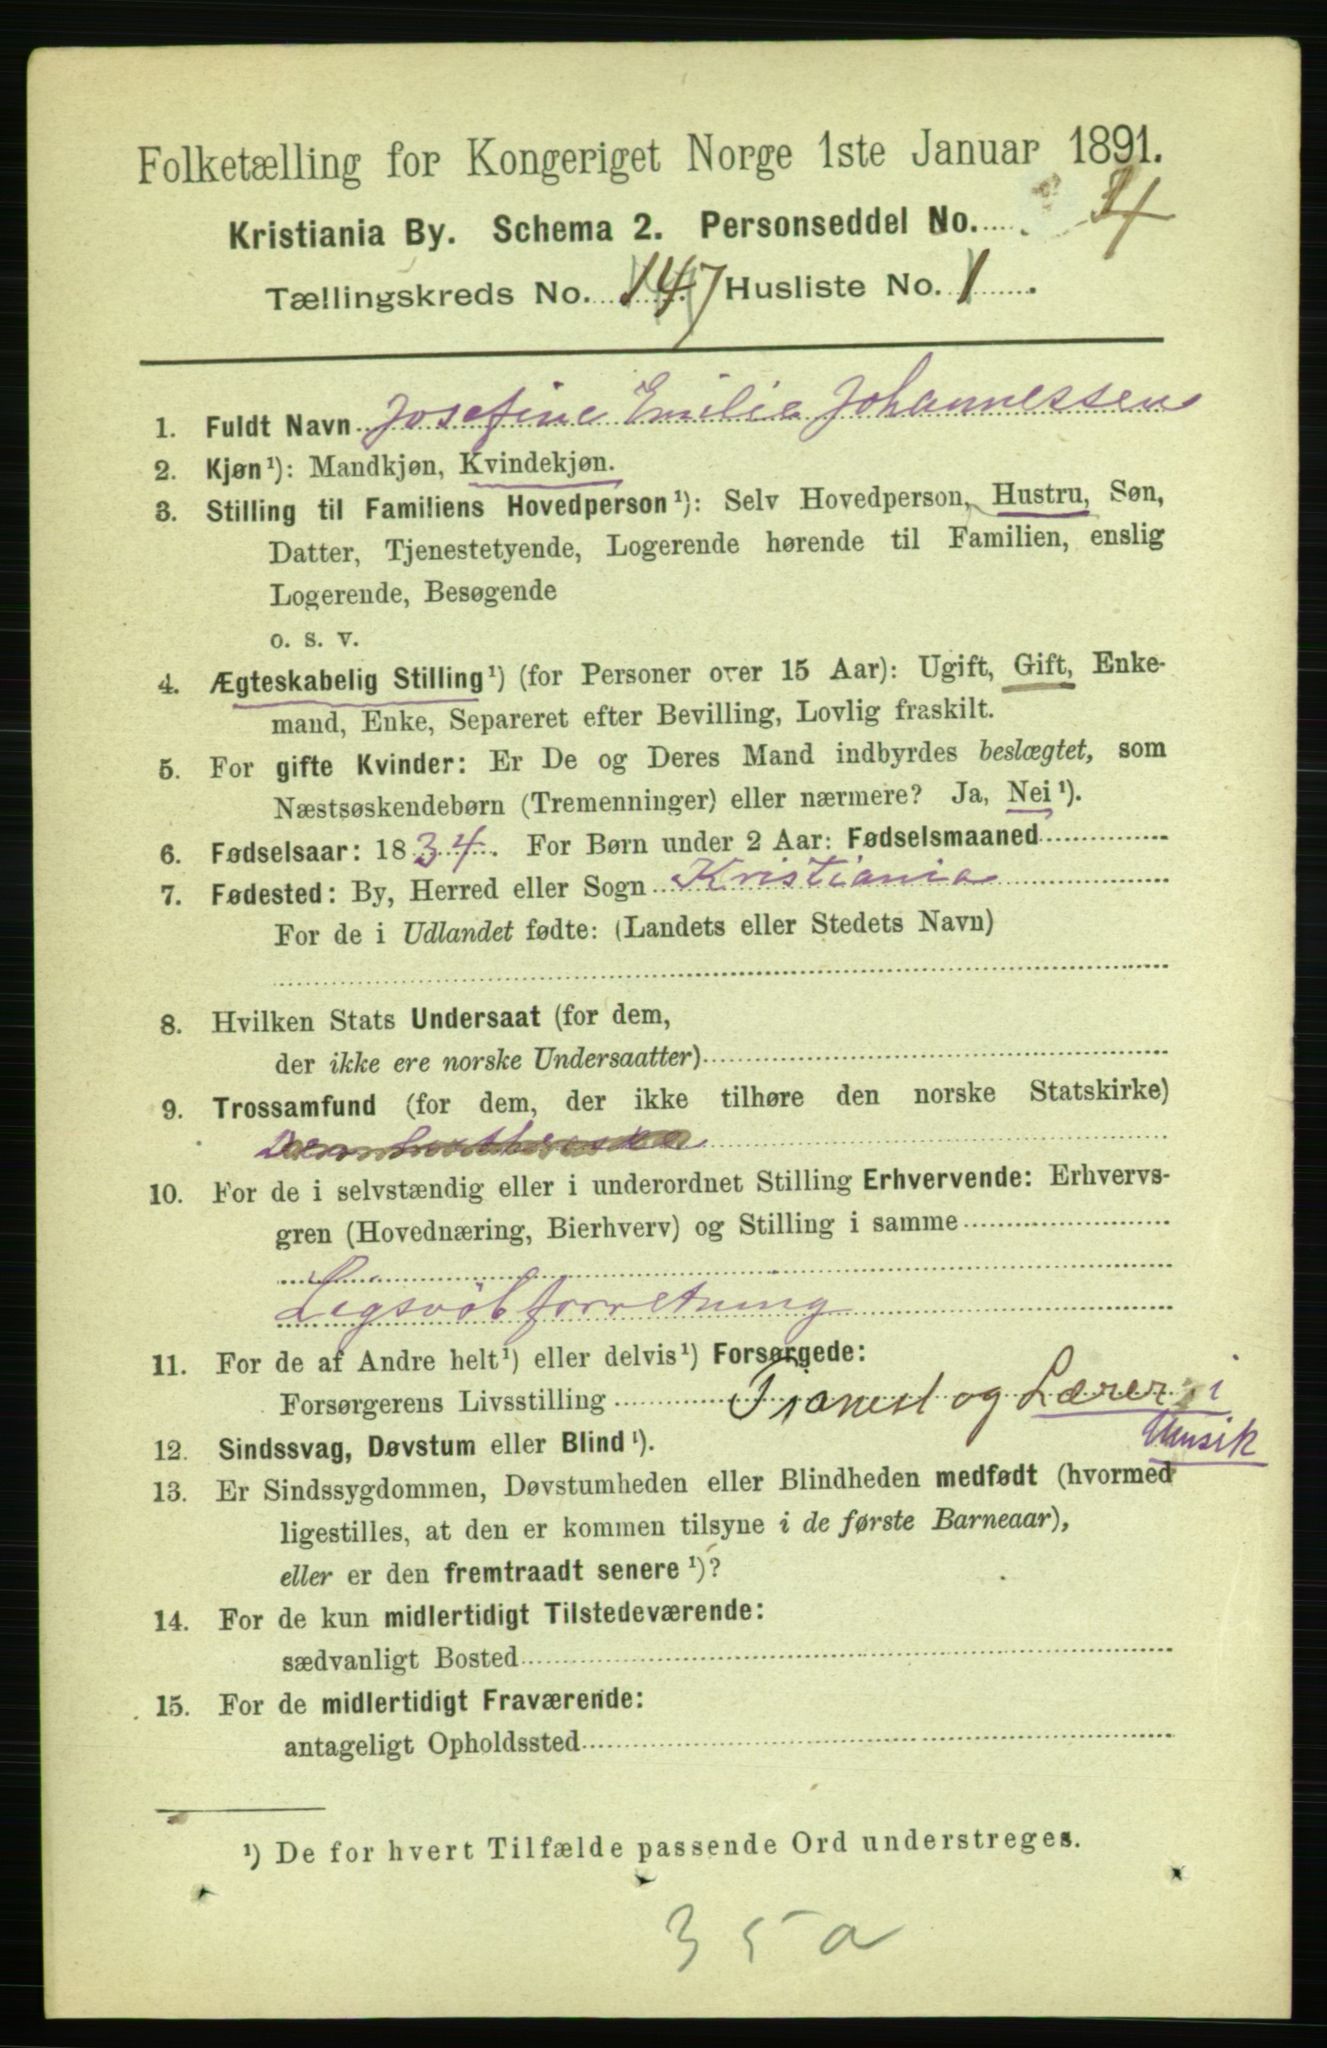 Folketælling for Kongeriget Norge 1ste Januar 1891.
Kristiania By. Schema 2. Personseddel No. 4
Tællingskreds No. 147 Husliste No. 1
1. Fuldt Navn Josefine Emilie Johannessen
2. Kjøn¹): Mandkjøn, Kvindekjøn.
3. Stilling til Familiens Hovedperson¹): Selv Hovedperson, Hustru, Søn,
Datter, Tjenestetyende, Logerende hørende til Familien, enslig
Logerende, Besøgende
o. s. v.
4. Ægteskabelig Stilling¹) (for Personer over 15 Aar): Ugift, Gift, Enke-
mand, Enke, Separeret efter Bevilling, Lovlig fraskilt.
5. For gifte Kvinder: Er De og Deres Mand indbyrdes beslægtet, som
Næstsøskendebørn (Tremenninger) eller nærmere? Ja, Nei¹).
6. Fødselsaar: 1834. For Børn under 2 Aar: Fødselsmaaned
7. Fødested: By, Herred eller Sogn Kristiania
For de i Udlandet fødte: (Landets eller Stedets Navn)
8. Hvilken Stats Undersaat (for dem,
der ikke ere norske Undersaatter)
9. Trossamfund (for dem, der ikke tilhøre den norske Statskirke)
10. For de i selvstændig eller i underordnet Stilling Erhvervende: Erhvervs-
gren (Hovednæring, Bierhverv) og Stilling i samme
Ligsvøbforretning
11. For de af Andre helt¹) eller delvis¹) Forsørgede:
Forsørgerens Livsstilling og Lærer i
Musik
12. Sindssvag, Døvstum eller Blind¹).
13. Er Sindssygdommen, Døvstumheden eller Blindheden medfødt (hvormed
ligestilles, at den er kommen tilsyne i de første Barneaar),
eller er den fremtraadt senere¹)?
14. For de kun midlertidigt Tilstedeværende:
sædvanligt Bosted
15. For de midlertidigt Fraværende:
antageligt Opholdssted
¹) De for hvert Tilfælde passende Ord understreges.
35a